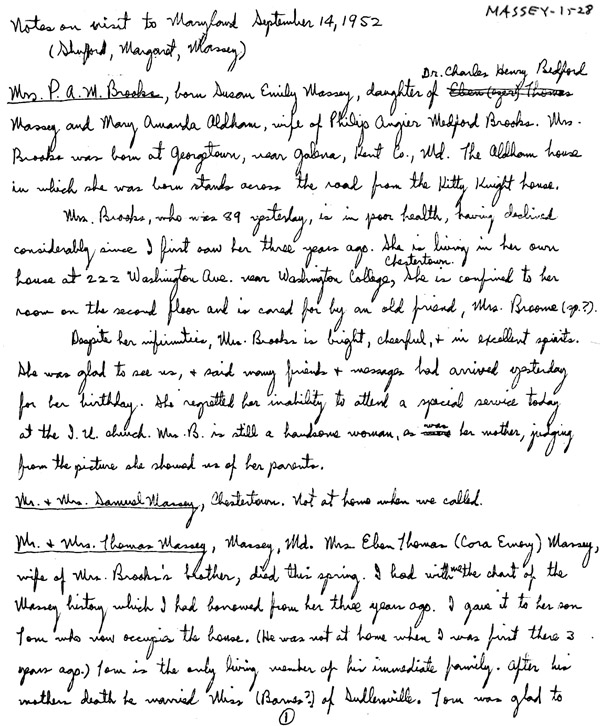 MASSEY-1528
Notes on visit to Maryland September 14, 1952
(Shuford, Margaret, Massey)
Dr. Charles Henry Bedford
Mrs. P. A. M. Brooks, born Susan Emily Massey, daughter of Eben(ezer) Thomas
Massey and Mary Amanda Aldham, wife of Philip Angier Medford Brooks. Mrs.
Brooks was born at Georgtown, near Galena, Kent Co., Md. The Aldham house
in which she was born stands across the road from the Kitty Knight house.
Mrs. Brooks, who was 89 yesterday, is in poor health, having declined
considerably since I first saw her three years ago. She is living in her own
Chestertown.
house at 222 Washington Ave. near Washington College, She is confined to her
room on the second floor and is cared for by an old friend, Mrs. Broome (sp.?).
Despite her infirmities, Mrs. Brooks is bright, cheerful, + in excellent spirits.
She was glad to see us, + said many friends + messages had arrived yesterday
for her birthday. She regretted her inability to attend a special service today
at the I. U. church. Mrs. B. is still a handsome woman, as was her mother, judging
from the picture she showed us of her parents.
Mr. + Mrs. Samuel Massey, Chestertown. Not at home when we called.
Mr. + Mrs. Thomas Massey, Massey, Md. Mrs Eben Thomas (Cora Emory) Massey,
wife of Mrs. Brooks's brother, died this spring. I had with me the chart of the
Massey history which I had borrowed from her three years ago. I gave it to her son
Tom who now occupies the house. (He was not at home when I was first there 3
years ago.) Tom is the only living member of his immediate family. After his
mothers death he married Miss (Barnes?) of Sudlersville. Tom was glad to
1